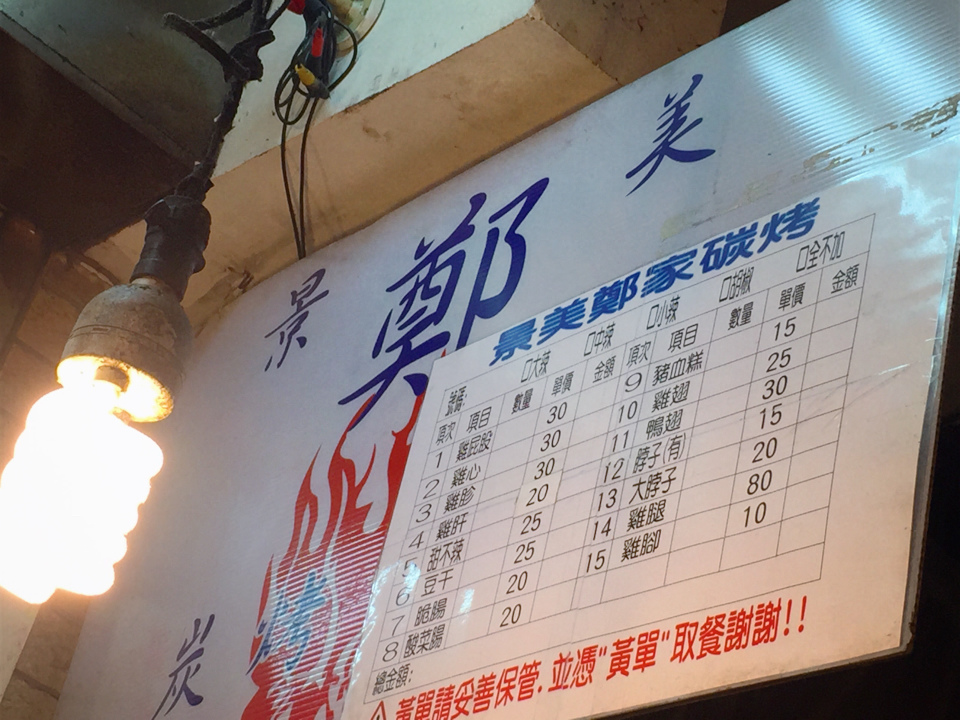 景 鄭 美
炭 烤
景美鄭家碳烤
號碼: □大辣 □中辣 □小辣 □胡椒 □全不加
項次 項目 數量 單價 金額 項次 項目 數量 單價 金額
1 雞屁股 30 9 豬血糕 15
2 雞心 30 10 雞翅 25
3 雞胗 30 11 鴨翅 30
4 雞肝 20 12 脖子(有) 15
5 甜不辣 25 13 大脖子 20
6 豆干 25 14 雞腿 80
7 脆腸 20 15 雞腳 10
8 酸菜腸 20
總金額:
⚠ 黃單請妥善保管.並憑"黃單"取餐謝謝!!